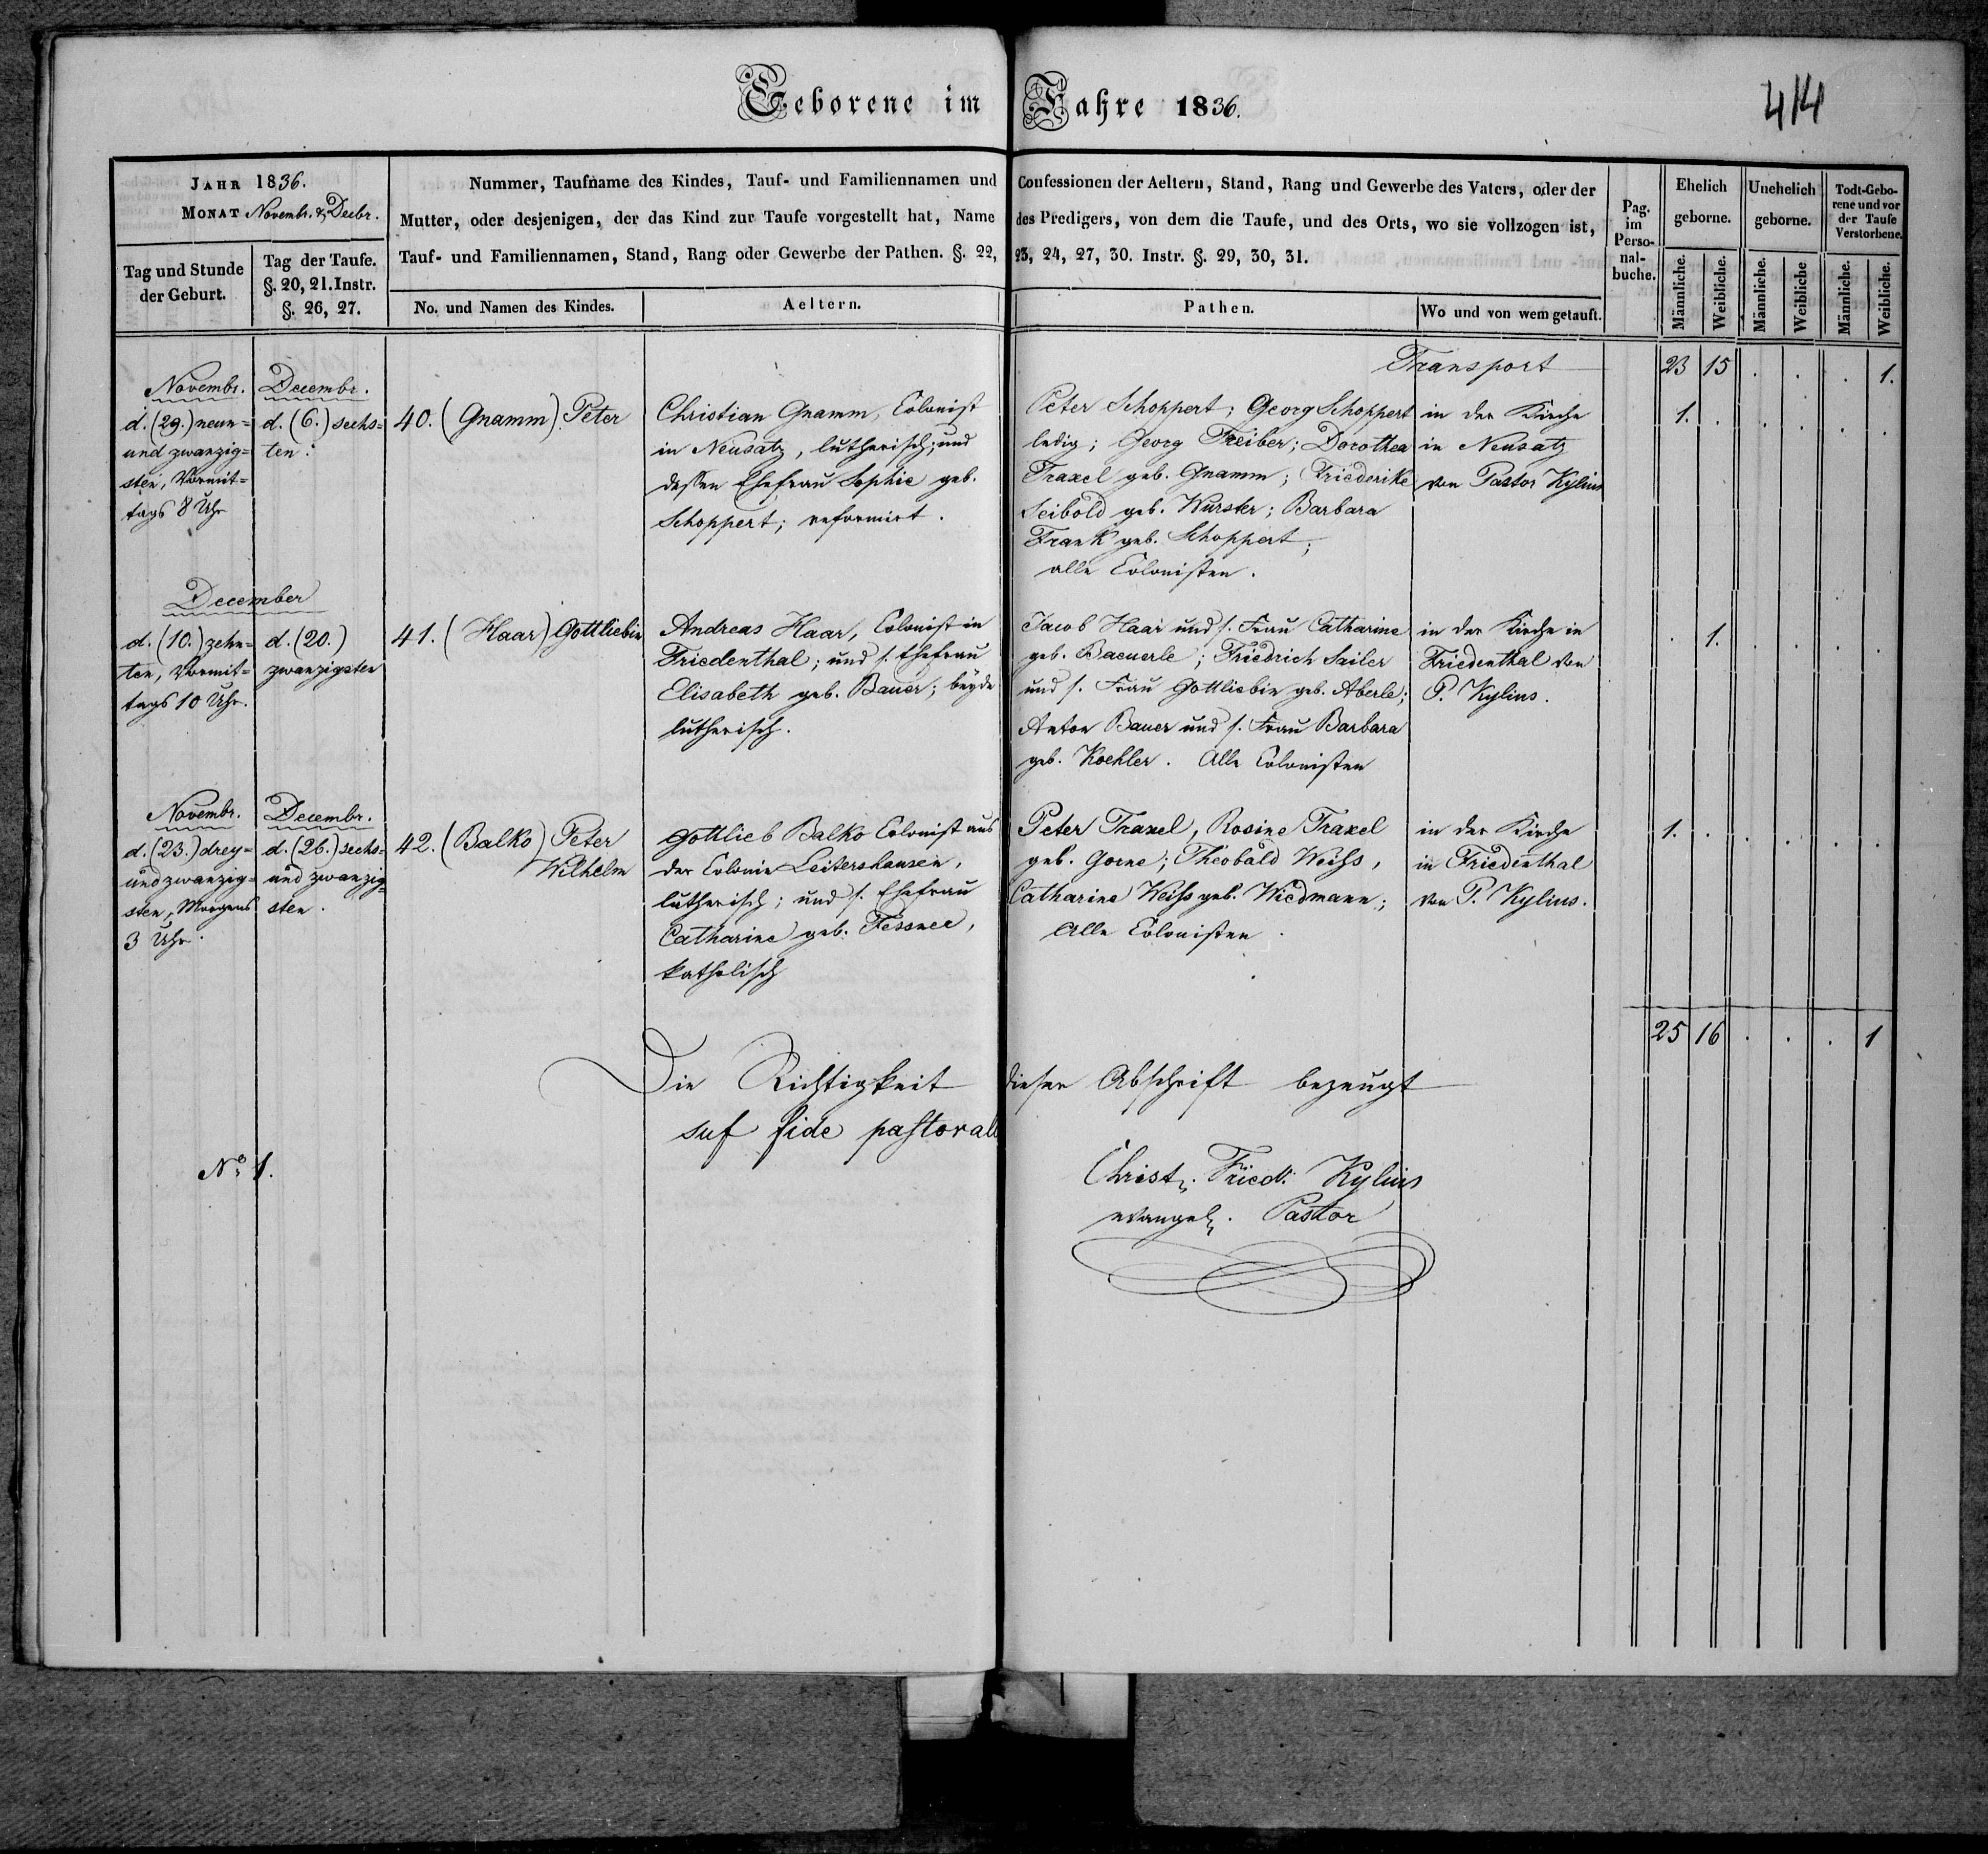 Geborene im Jahre 1836.
414
JAHR 1836.
MONAT Novembr. & Decbr.
Tag und Stunde
der Geburt.
Tag der Taufe.
§. 20, 21. Instr.
§. 26, 27.
Nummer, Taufname des Kindes, Tauf- und Familiennamen und Confessionen der Aeltern, Stand, Rang und Gewerbe des Vaters, oder der
Mutter, oder desjenigen, der das Kind zur Taufe vorgestellt hat, Name des Predigers, von dem die Taufe, und des Orts, wo sie vollzogen ist,
Tauf- und Familiennamen, Stand, Rang oder Gewerbe der Pathen. §. 22, 23, 24, 27, 30. Instr. §. 29, 30, 31.
No. und Namen des Kindes.
Aeltern.
Pathen.
Wo und von wem getauft.
Pag.
im
Perso-
nal-
buche.
Ehelich
geborne.
Männliche.
Weibliche.
Unehelich
geborne.
Männliche.
Weibliche
Todt-Gebo-
rene und vor
der Taufe
Verstorbene.
Männliche.
Weibliche.
Transport 23 15 . . . 1.
Novembr.
d. (29.) neun-
und zwanzig-
sten, Vormit-
tags 8 Uhr
Decembr.
d. (6.) sechs-
ten.
40. (Gnamm) Peter
Christian Gnamm, Colonist
in Neusatz, lutherisch; und
dessen Ehefrau Sophie geb.
Schoppert; reformirt.
Peter Schoppert; Georg Schoppert
ledig; Georg Treiber; Dorothea
Traxel geb. Gnamm; Friederike
Seibold geb. Wurster; Barbara
Frank geb. Schoppert;
alle Colonisten.
in der Kirche
in Neusatz
von Pastor Kylius
1. . . . . .
December
d. (10.) zehn-
ten, Vormit-
tags 10 Uhr.
d. (20.)
zwanzigsten
41. (Haar) Gottliebin
Andreas Haar, Colonist in
Friedenthal; und s. Ehefrau
Elisabeth geb. Bauer; beyde
lutherisch.
Jacob Haar und s. Frau Catharine
geb. Baeuerle; Friedrich Sailer
und s. Frau Gottliebin geb. Aberle;
Anton Bauer und s. Frau Barbara
geb. Koehler. Alle Colonisten
in der Kirche in
Friedenthal von
P. Kylius.
. 1. . . . .
Novembr.
d. (23.) drey-
und zwanzig-
sten, Morgens
3 Uhr.
Decembr.
d. (26.) sechs-
und zwanzig-
sten.
42. (Balko) Peter
Wilhelm
Gottlieb Balko Colonist aus
der Colonie Leitershausen,
lutherisch; und s. Ehefrau
Catharine geb. Fessner,
katholisch
Peter Traxel, Rosine Traxel
geb. Gorne; Theobald Weiss,
Catharine Weiss geb. Wiedmann;
Alle Colonisten.
in der Kirche
in Friedenthal
von P. Kylius.
1. . . . . .
25 16 . . . 1
Die Richtigkeit dieser Abschrift bezeugt
suf fide pastorali
Christ. Friedr. Kylius
evangel. Pastor
No 1.